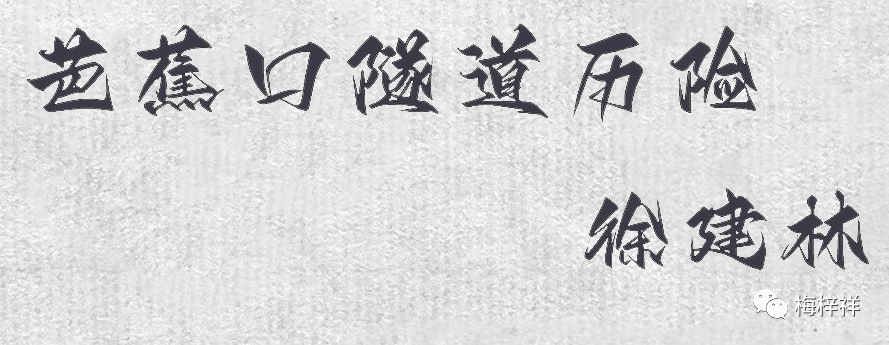 芭蕉口隧道历险
徐建林
梅梓祥